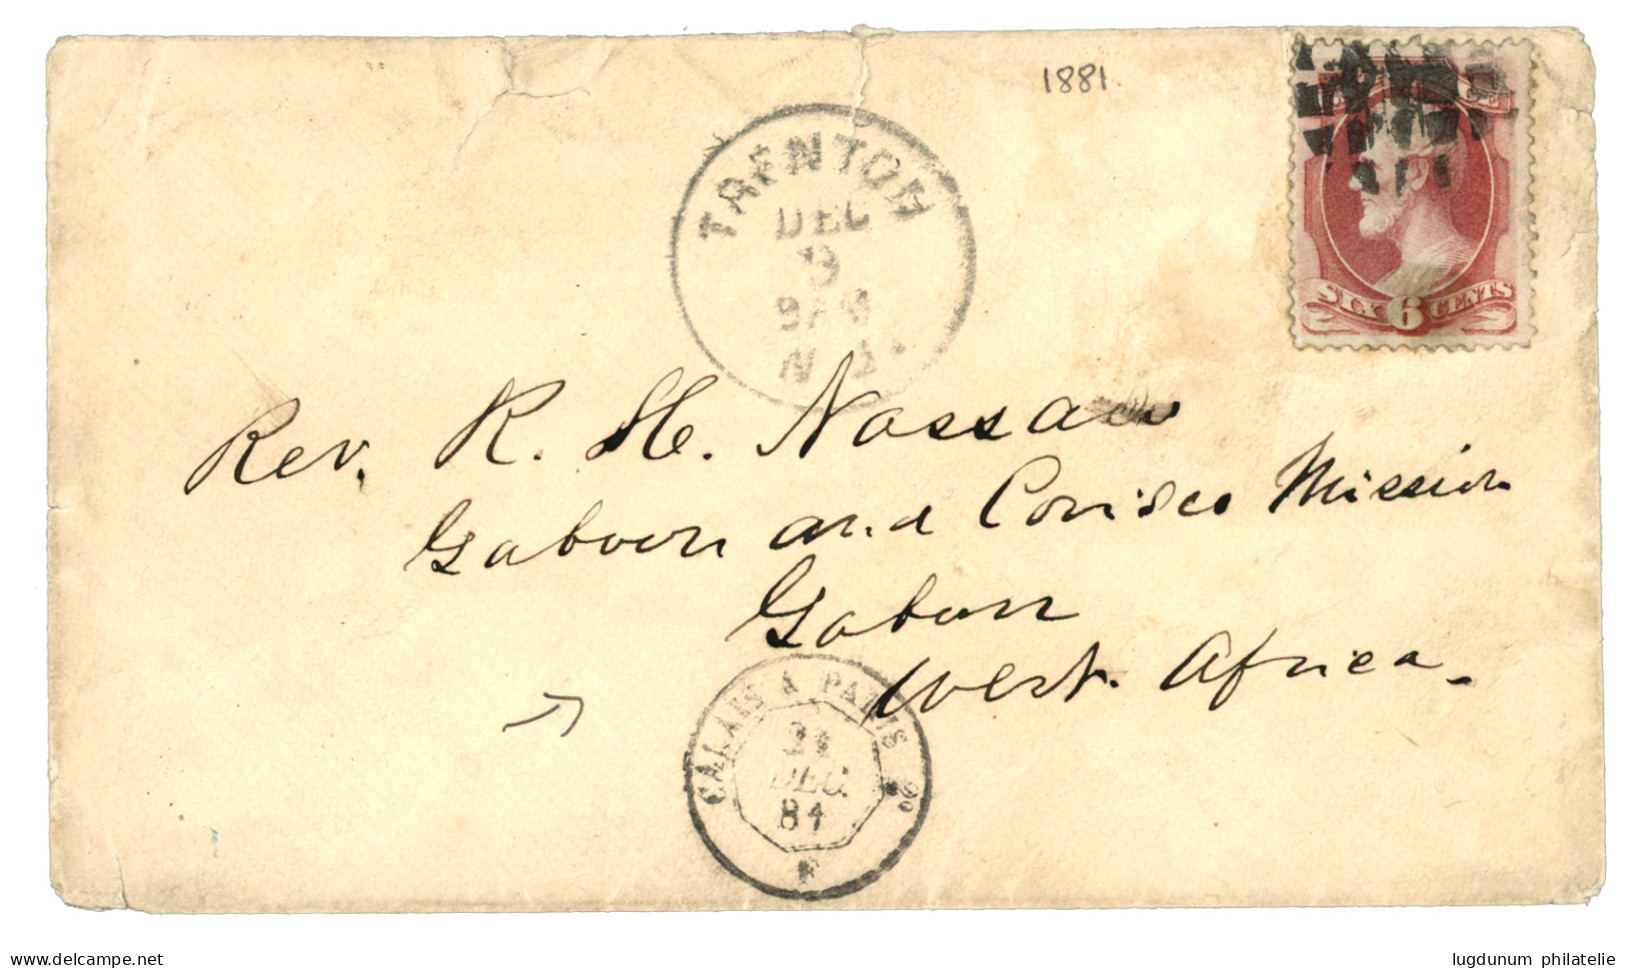 1881
TRENTON
DEC
3
9AM
N.J.
SIX 6 CENTS
Rev. R. H. Nassau
Gaboon and Corisco Mission
Gaboon
West Africa.
CALAIS A PARIS 2°
DEC.
F
delcampe.net
lugdunum philatelie